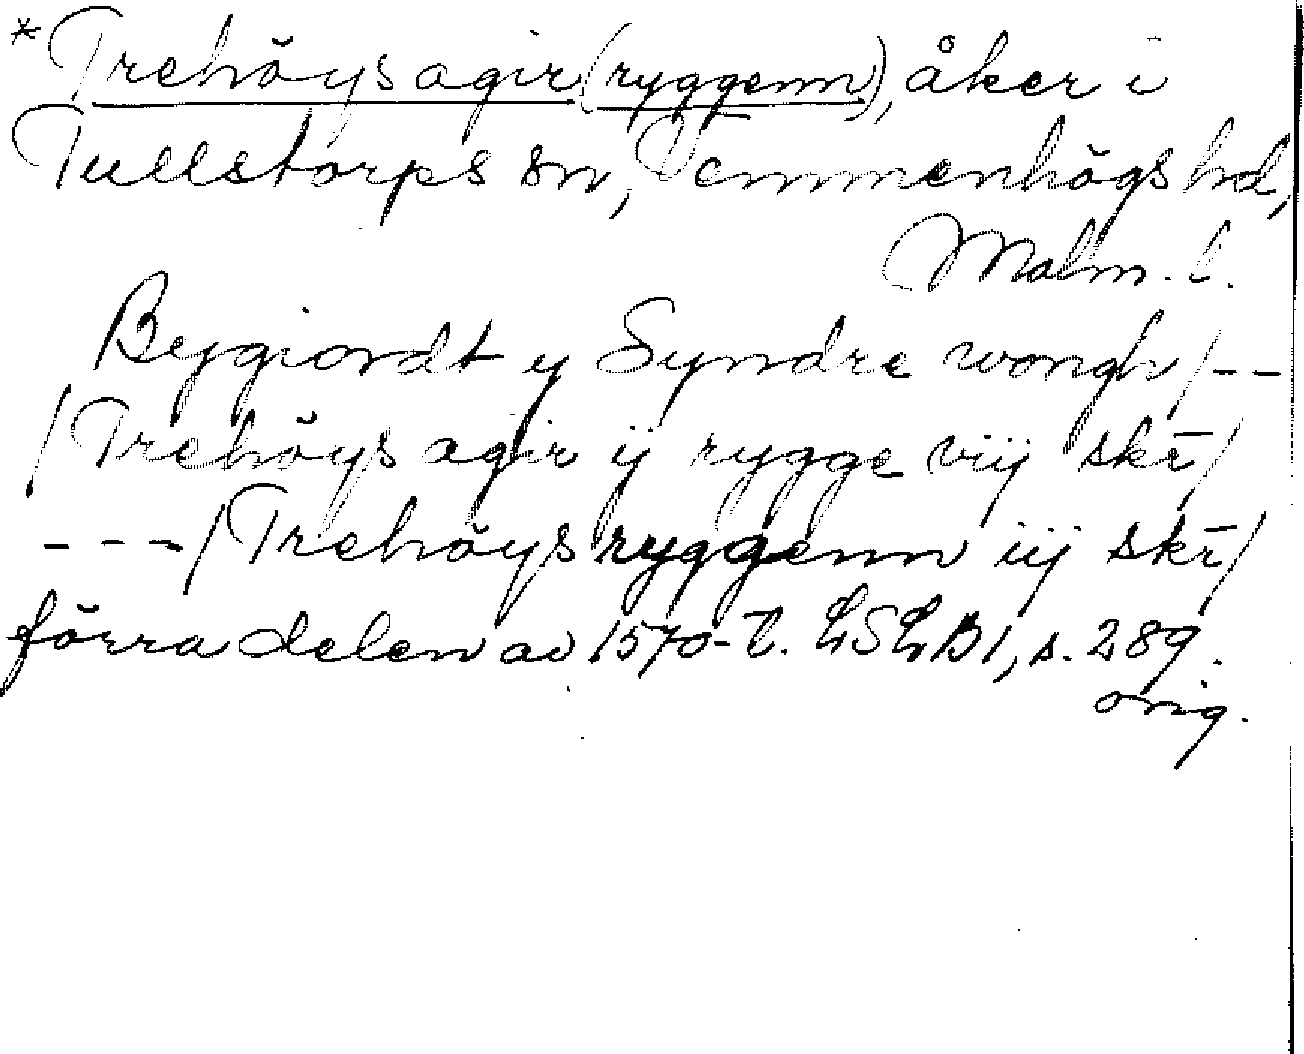 *Trehöys agir (ryggenn), åker i
Tullstorps sn, Vemmenhögs hd,
Malm. l.
Bygiordt y Syndre wongh/--
/Trehöys agir ij rygge viij skr̄/
---/Trehöys ryggenn iij skr̄/
förra delen av 1570-t. LSLB1, s. 289.
orig.